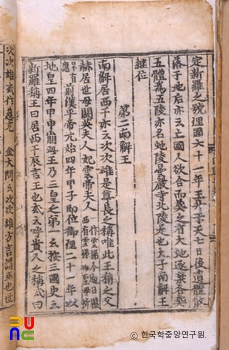 定新羅之號理國六十一年王升于天七日後遺體散
落于地后亦云亡國人欲合而葬之有大蛇逐禁各葬
五體爲五陵亦名蛇陵曇嚴寺北陵是也太子南解王
継位
第二南解王
南解居西干亦云次次雄是尊長之稱唯此王稱之父
赫居世母閼英夫人妃雲帝夫人
前漢平帝元始四年甲子即位御理二十一年以
地皇四年甲申崩此王乃三皇之第一云按三國史云
新羅稱王曰居西干辰言王也或云呼貴人之稱或曰
次次雄或作慈充金大問云次次雄方言謂巫也世
한국학중앙연구원.